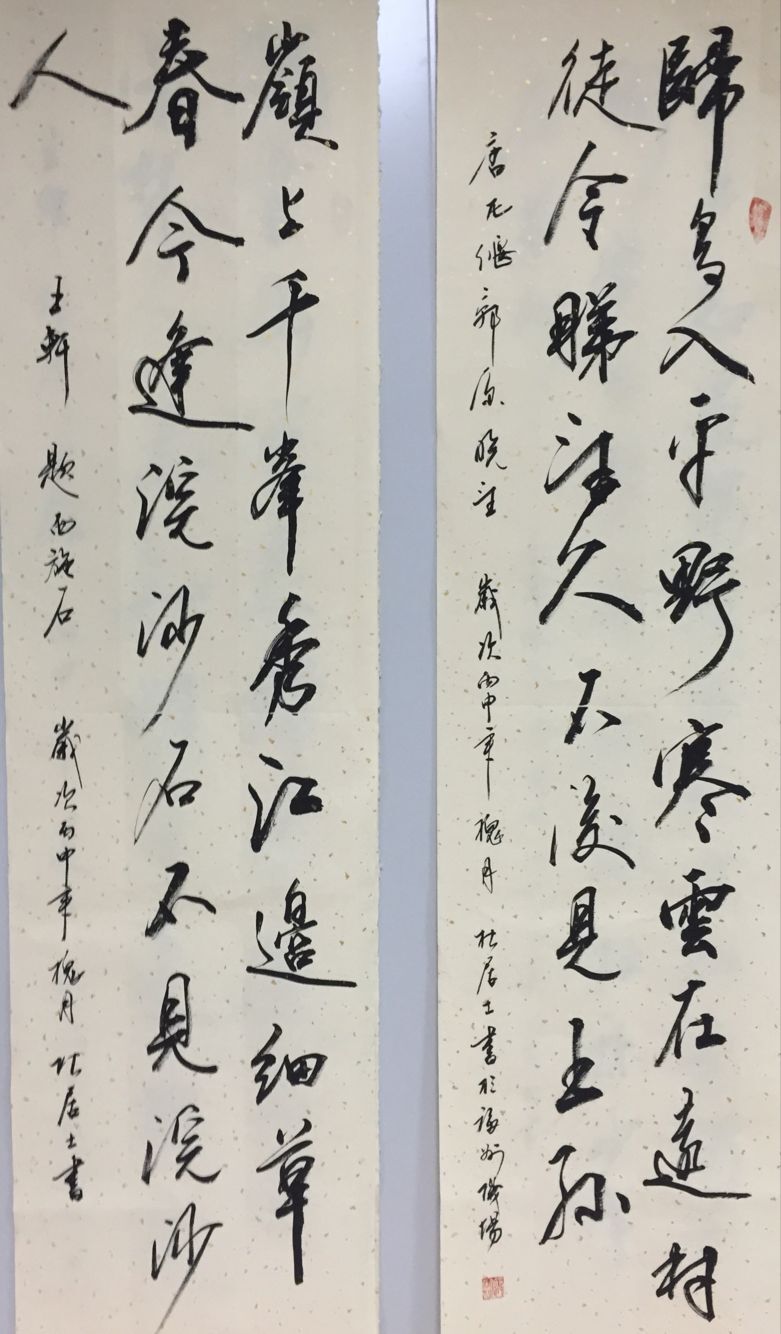 歸鳥入平野寒雲在遠村
徒令睇望久不復見王孫
唐 尤 郭原晚望 歲次丙申年槐月 杜居士書於
嶺上千峯秀江邊細草
春今逢浣沙石不見浣沙
人
王軒 題西施石 歲次丙申年槐月 杜居士書